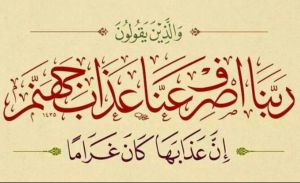 وَالَّذِينَ يَقُولُونَ
رَبَّنَا اصْرِفْ عَنَّا عَذَابَ جَهَنَّمَ
١٤٣٥
إِنَّ عَذَابَهَا كَانَ غَرَامًا